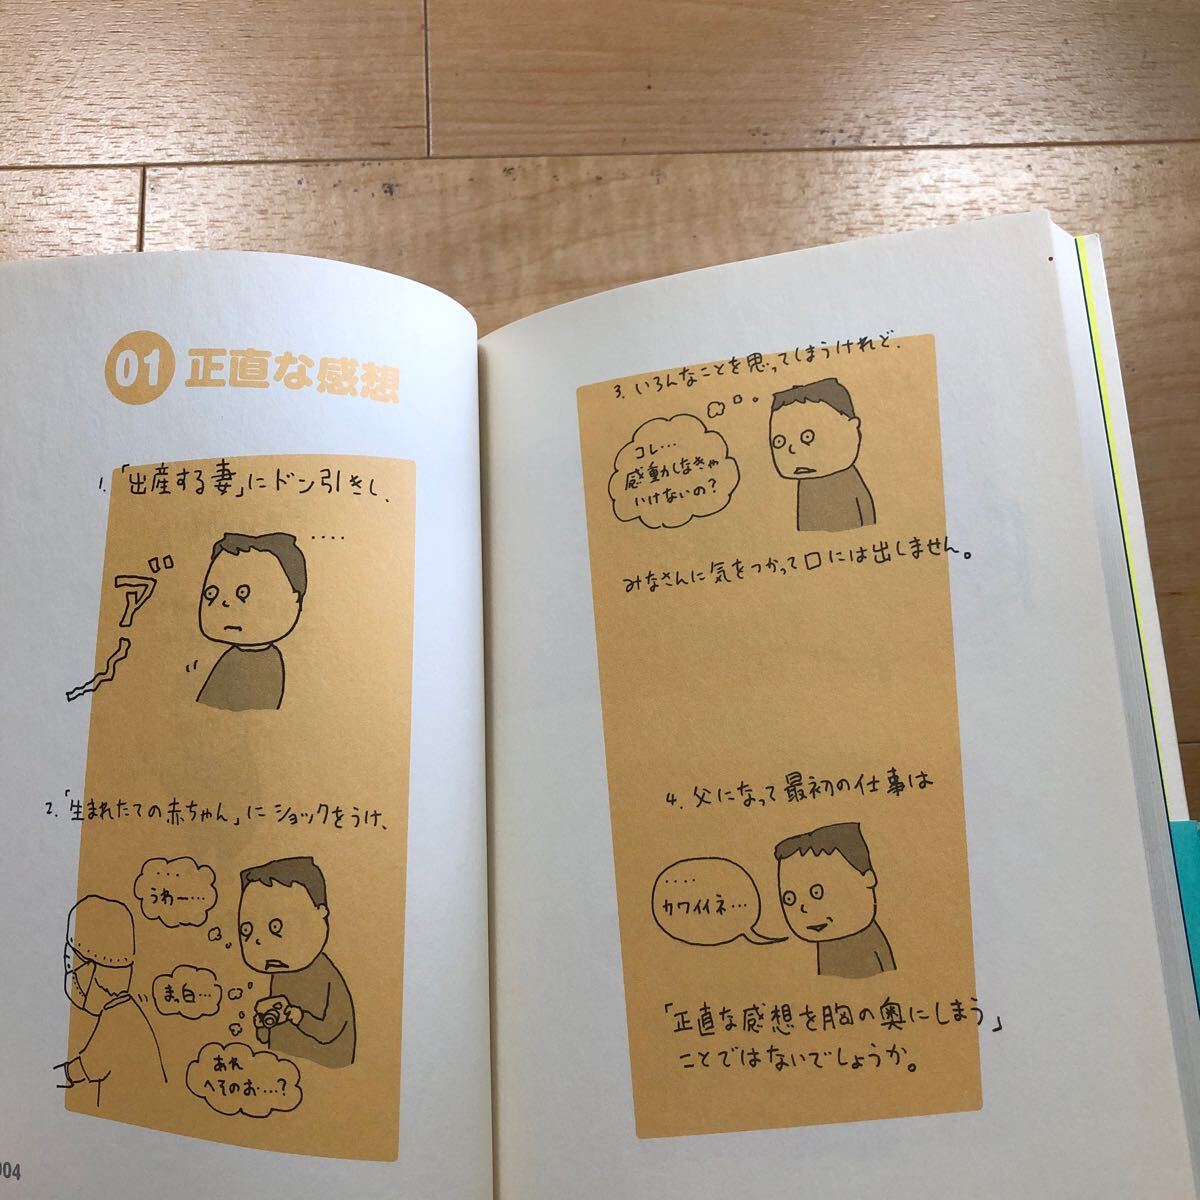 01 正直な感想
1. 「出産する妻」にドン引きし、
‥‥
ア゛ー
2. 「生まれたての赤ちゃん」にショックをうけ、
‥‥
うわー…
まっ白…
あれ
へそのお‥‥?
004
3. いろんなことを思ってしまうけれど、
コレ…
感動しなきゃ
いけないの?
みなさんに気をつかって口には出しません。
4. 父になって最初の仕事は
‥‥
カワイイネ…
「正直な感想を胸の奥にしまう」
ことではないでしょうか。